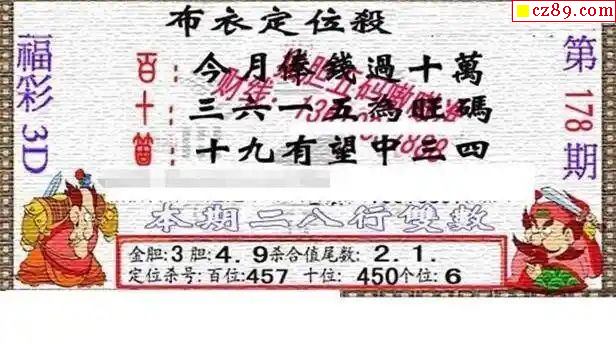 cz89.com
布衣定位殺
福彩3D
第178期
百：今月俸錢過十萬
十：三六一五為旺碼
個：十九有望中三四
本期二八行雙數
金胆:3 胆:4.9杀合值尾数:2.1.
定位杀号:百位:457 十位:450个位:6